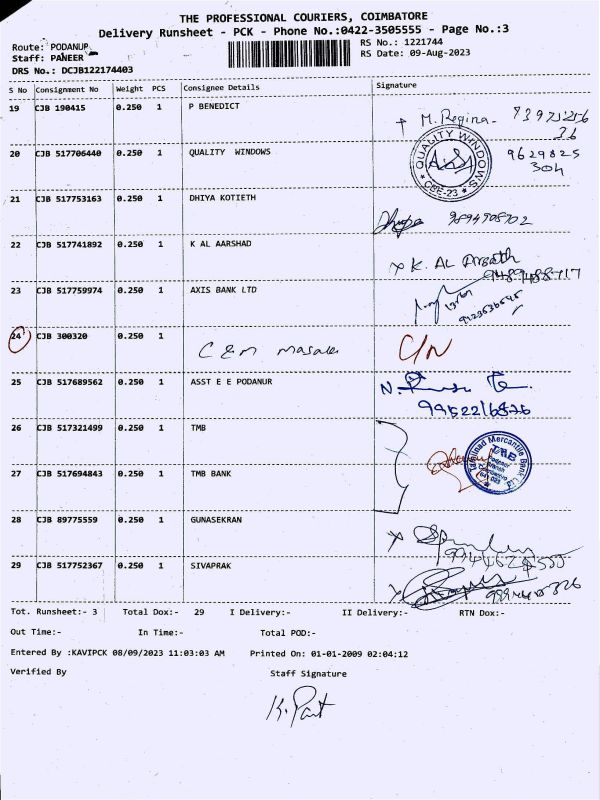 THE PROFESSIONAL COURIERS, COIMBATORE
Delivery Runsheet - PCK - Phone No.:0422-3505555 - Page No.:3
Route: PODANUR
RS No.: 1221744
Staff: PANEER
RS Date: 09-Aug-2023
DRS No.: DCJB122174403
S No Consignment No Weight PCS Consignee Details Signature
19 CJB 190415 0.250 1 P BENEDICT M. Regina-
20 CJB 517706440 0.250 1 QUALITY WINDOWS QUALITY WINDOWS CBE-23 9629825
304
21 CJB 517753163 0.250 1 DHIYA KOTIETH
22 CJB 517741892 0.250 1 K AL AARSHAD K. AL
23 CJB 517759974 0.250 1 AXIS BANK LTD
24 CJB 300320 0.250 1 C & M masala C/N
25 CJB 517689562 0.250 1 ASST E E PODANUR N.
9952216826
26 CJB 517321499 0.250 1 TMB Tamilnad Mercantile Bank Ltd TMB
27 CJB 517694843 0.250 1 TMB BANK
28 CJB 89775559 0.250 1 GUNASEKRAN
29 CJB 517752367 0.250 1 SIVAPRAK
Tot. Runsheet:- 3 Total Dox:- 29 I Delivery:- II Delivery:- RTN Dox:-
Out Time:- In Time:- Total POD:-
Entered By :KAVIPCK 08/09/2023 11:03:03 AM Printed On: 01-01-2009 02:04:12
Verified By Staff Signature